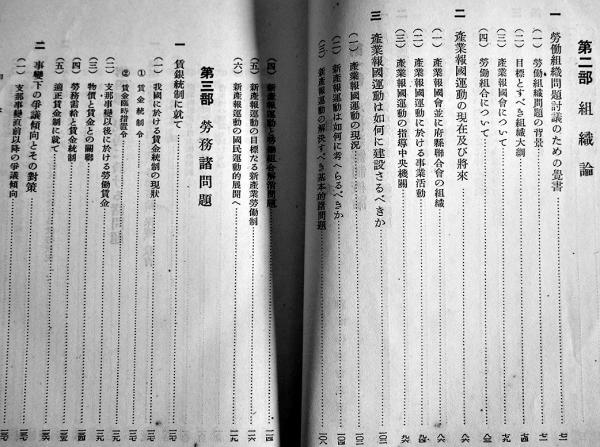 第二部 組織論
一 勞働組織問題討議のための覺書
(一) 勞働組織問題の背景
(二) 目標とすべき組織大綱
(三) 產業報國會について
(四) 勞働組合について
二 產業報國運動の現在及び將來
(一) 產業報國會並に府縣聯合會の組織
(二) 產業報國運動に於ける事業活動
(三) 產業報國運動の指導中央機關
三 產業報國運動は如何に建設さるべきか
(一) 產業報國運動の現況
(二) 新產報運動は如何に考へらるべきか
(三) 新產報運動の解決すべき基本的諸問題
(四) 新產報運動と勞働組合解消問題
(五) 新產報運動の目標なる新產業勞働制
(六) 新產報運動の國民運動的展開へ
第三部 勞務諸問題
一 賃銀統制に就て
(一) 我國に於ける賃金統制の現狀
① 賃金統制令
② 賃金臨時措置令
(二) 支那事變以後に於ける勞働賃金
(三) 物價と賃金との關聯
(四) 勞務需給と賃金統制
(五) 適正賃金制に就て
二 事變下の爭議傾向とその對策
(一) 支那事變直前以降の爭議傾向